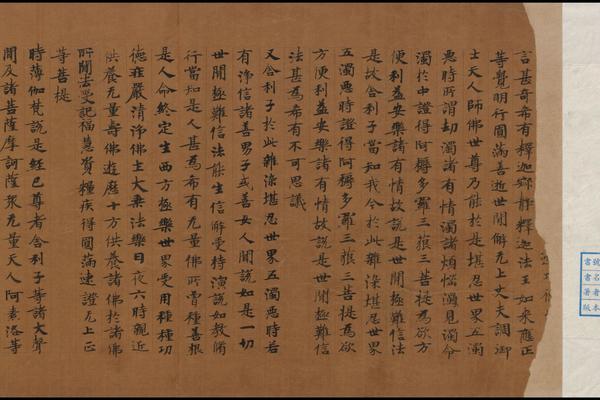 言甚奇希有釋迦寂靜釋迦法王如來應正
等覺明行圓滿善逝世間解无上丈夫調御
士天人師佛世尊乃能於是堪忍世界五濁
惡時所謂劫濁諸有情濁諸煩惱濁見濁命
濁於中證得阿耨多羅三藐三菩提為欲方
便利益安樂諸有情故說是世間極難信法
是故舍利子當知我今於此雜染堪忍世界
五濁惡時證得阿耨多羅三藐三菩提為欲
方便利益安樂諸有情故說是世間極難信
法甚為希有不可思議
又舍利子於此雜染堪忍世界五濁惡時若
有淨信諸善男子或善女人聞說如是一切
世間極難信法能生信解受持演說如教脩
行當知是人甚為希有无量佛所曾種善根
是人命終定生西方極樂世界受用種種功
德莊嚴清淨佛土大乘法樂日夜六時親近
供養无量壽佛遊歷十方供養諸佛於諸佛
所聞法受記福慧資糧疾得圓滿速證无上正
等菩提
時薄伽梵說是經已尊者舍利子等諸大聲
聞及諸菩薩摩訶薩衆无量天人阿素洛等
書號
書名
著者
版本